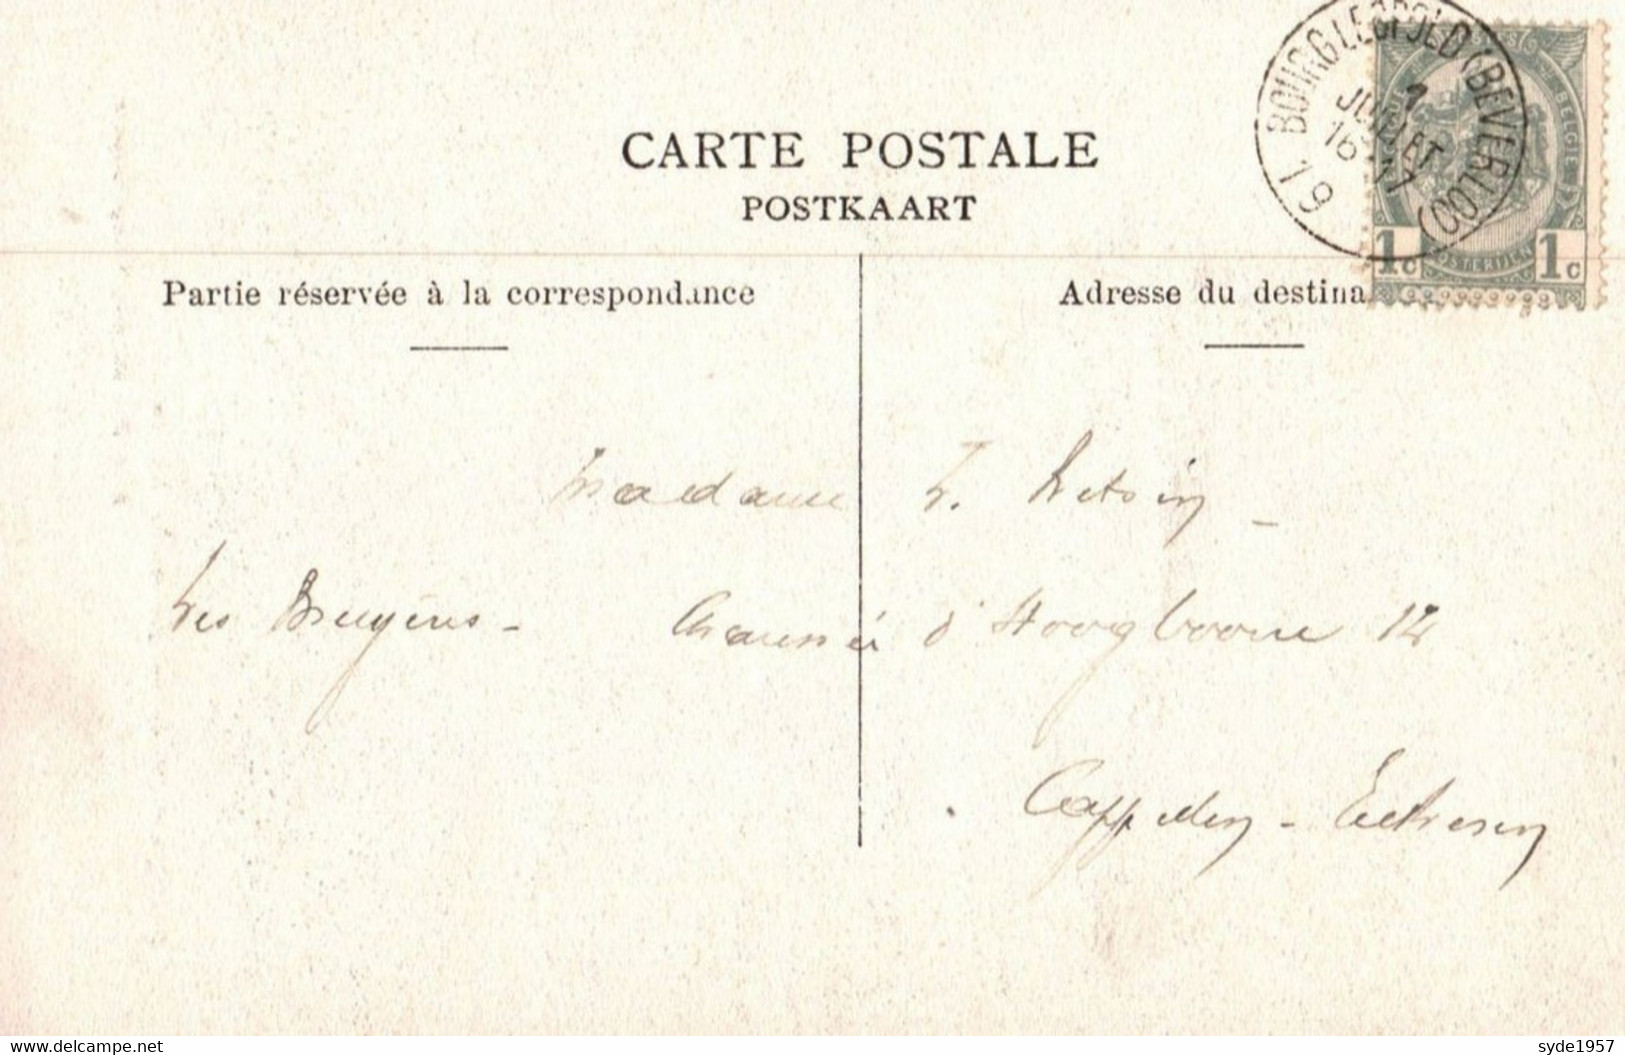 CARTE POSTALE
POSTKAART
BOURG LEOPOLD (BEVERLOO)
1
JUILLET
16-17
19
1c 1c
Partie réservée à la correspondance
Adresse du destina
Madame
Les Bruyères -
Chaussée d'Hoogboom 12
Cappellen - Eeckeren
syde1957